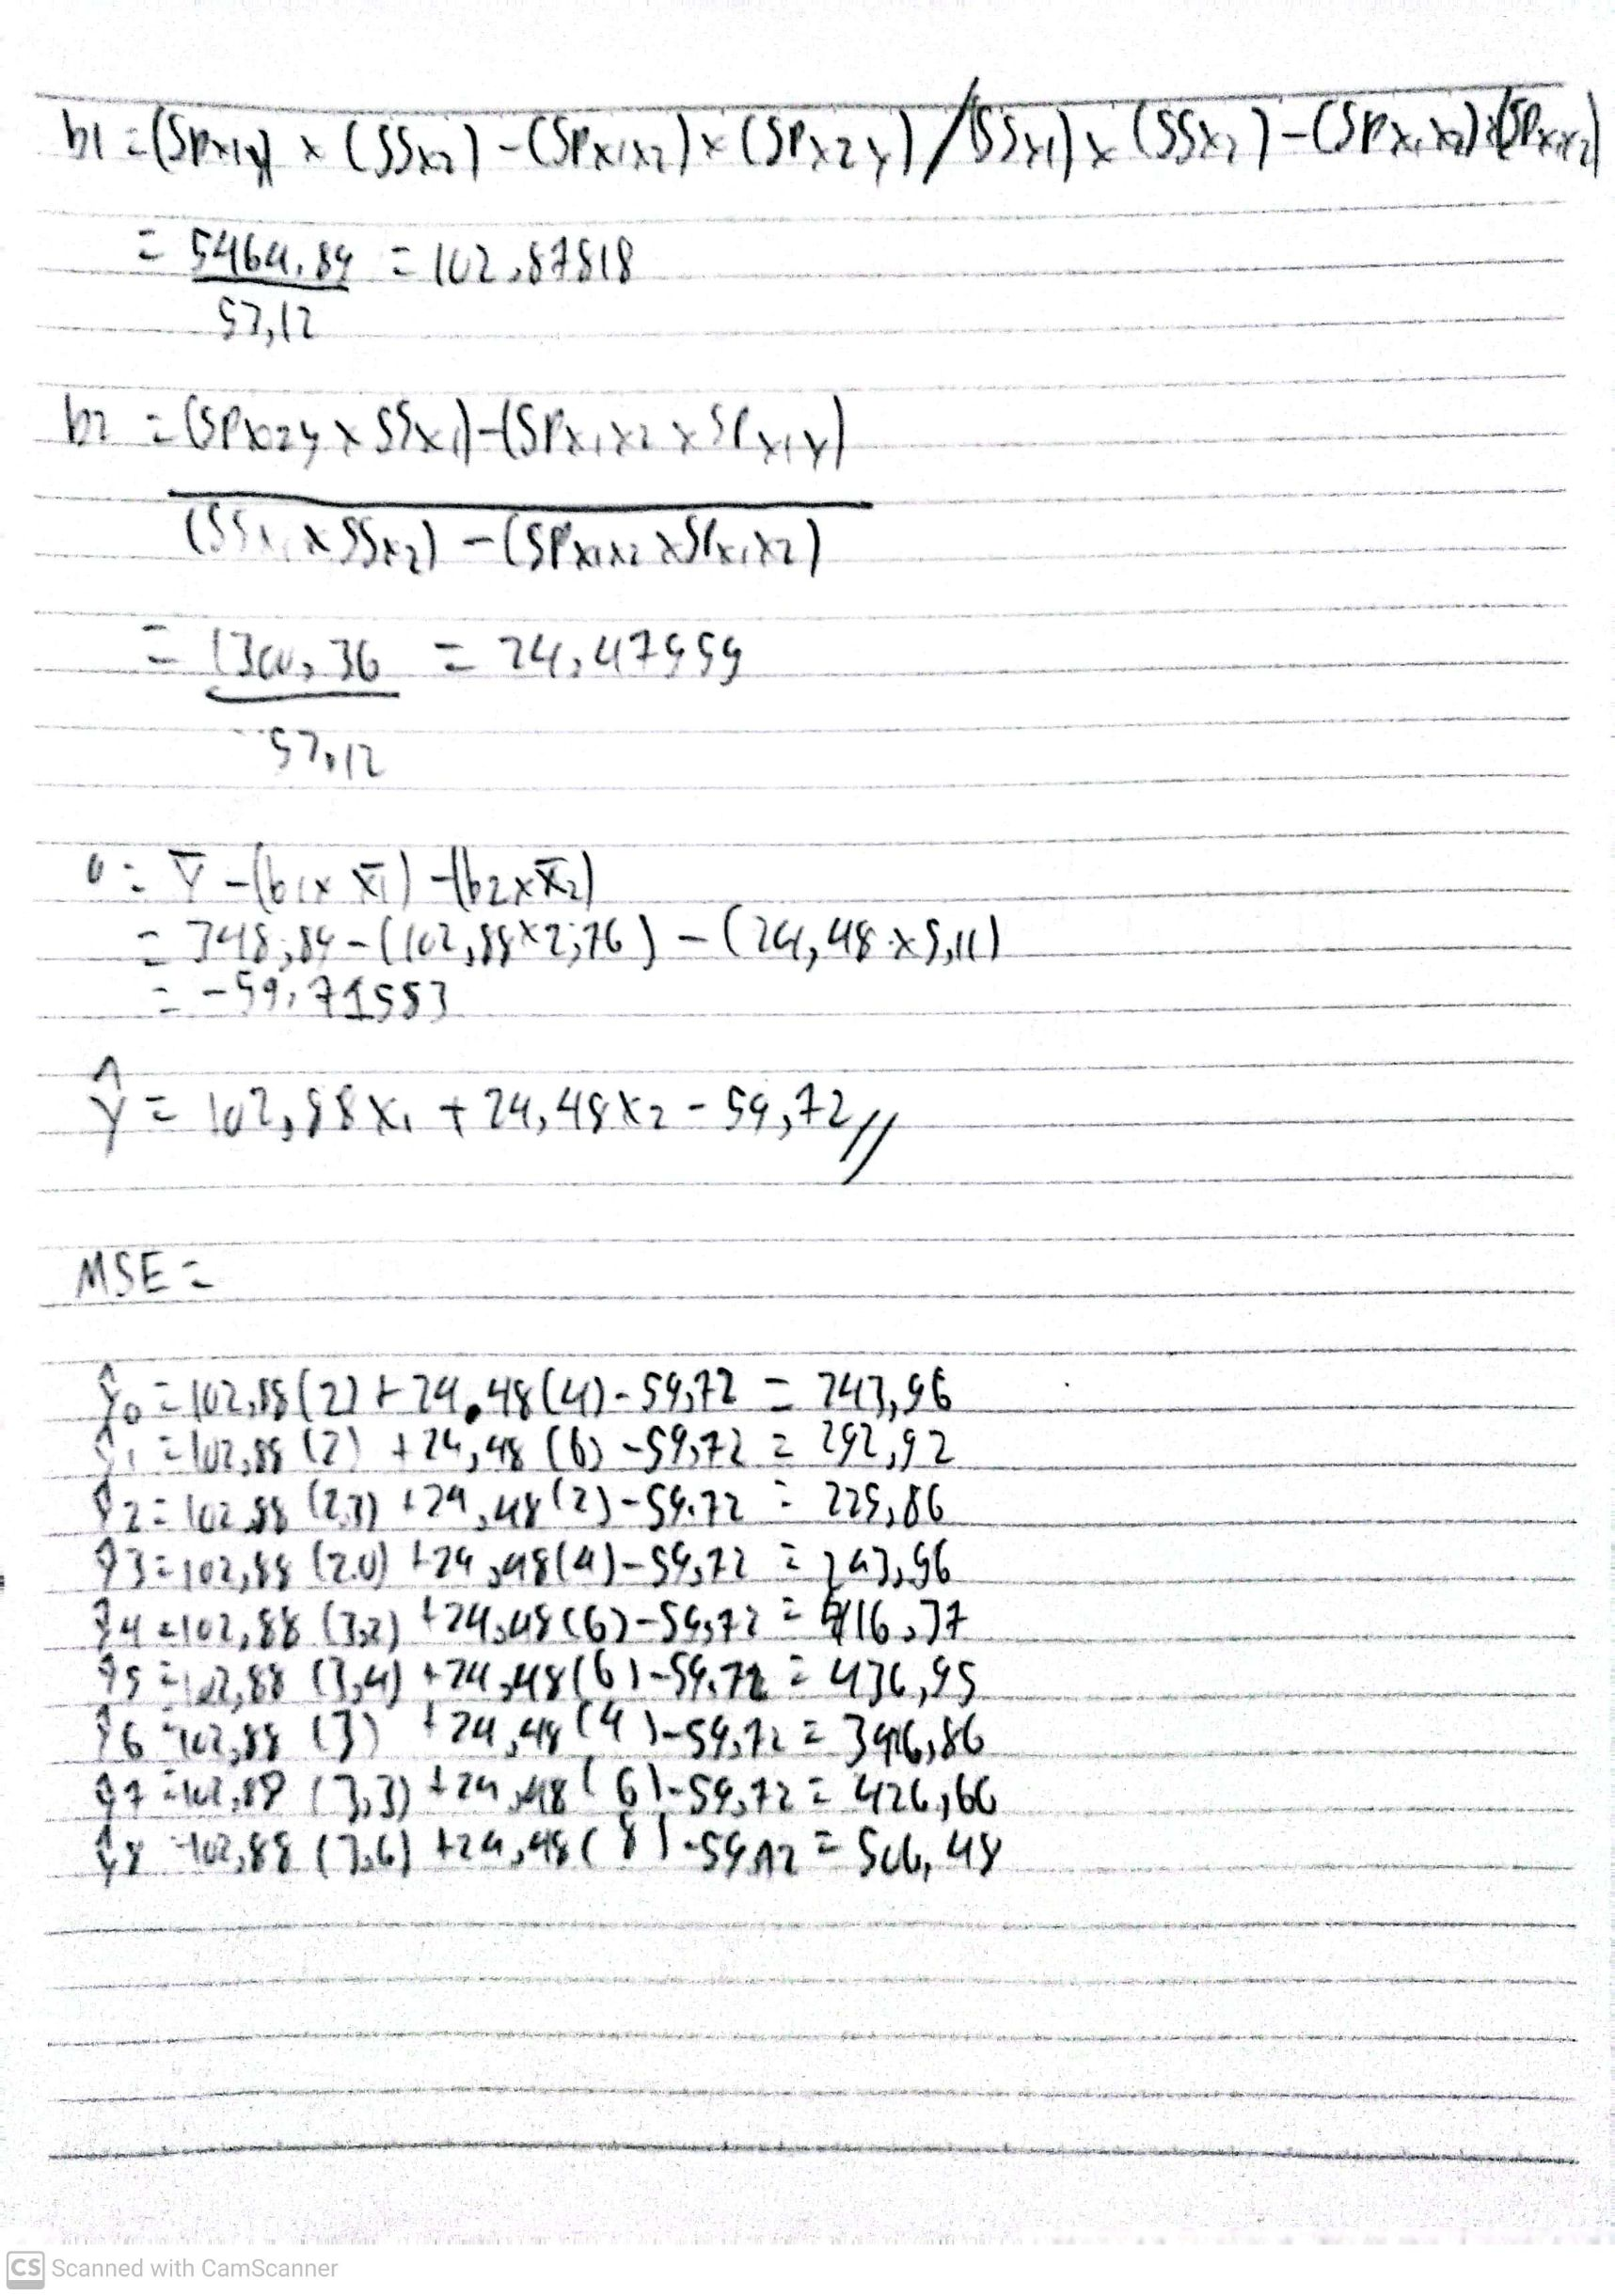 b1 = (SPx1y) x (SSx2) - (SPx1x2) x (SPx2y) / (SSx1) x (SSx2) - (SPx1x2) x (SPx1x2)
= 5464,84 = 102,87818
53,12
b2 = (SPx2y x SSx1) - (SPx1x2 x SPx1y)
(SSx1 x SSx2) - (SPx1x2 x SPx1x2)
= 1300,36 = 24,47959
53,12
= Y̅ - (b1 x X̅1) - (b2 x X̅2)
= 348,84 - (102,88 x 2,76) - (24,48 x 5,11)
= -59,71583
Ŷ = 102,88 X1 + 24,48 X2 - 59,72 //
MSE =
ŷ0 = 102,88 (2) + 24,48 (4) - 59,72 = 243,96
ŷ1 = 102,88 (2) + 24,48 (6) - 59,72 = 292,92
ŷ2 = 102,88 (2,3) + 24,48 (2) - 59,72 = 225,86
ŷ3 = 102,88 (2.0) + 24,48 (4) - 59,72 = 243,96
ŷ4 = 102,88 (3,2) + 24,48 (6) - 59,72 = 416,37
ŷ5 = 102,88 (3,4) + 24,48 (6) - 59,72 = 436,95
ŷ6 = 102,88 (3) + 24,48 (4) - 59,72 = 346,86
ŷ7 = 102,88 (3,3) + 24,48 (6) - 59,72 = 426,66
ŷ8 = 102,88 (3,6) + 24,48 (8) - 59,72 = 506,48
CS Scanned with CamScanner